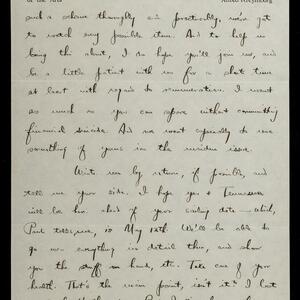 of the Arts
such a scheme thoroughly and practically, we've got
to watch every possible item. And to help us
bring this about, I do hope you'll join us, and
be a little patient with us for a short time
at least with regards to remuneration. I want
as much as you can spare without committing
financial suicide. And we want especially to use
something of yours in the issue.
Write me by return, if possible, and
tell me your side. I hope you & Tennessee
will be here ahead of your sailing date — which,
Paul tells me, is May 18th. We'll be able to
go over everything in detail then, and show
you the stuff on hand, etc. Take care of your
health. That's the main point, isn't it? I lost